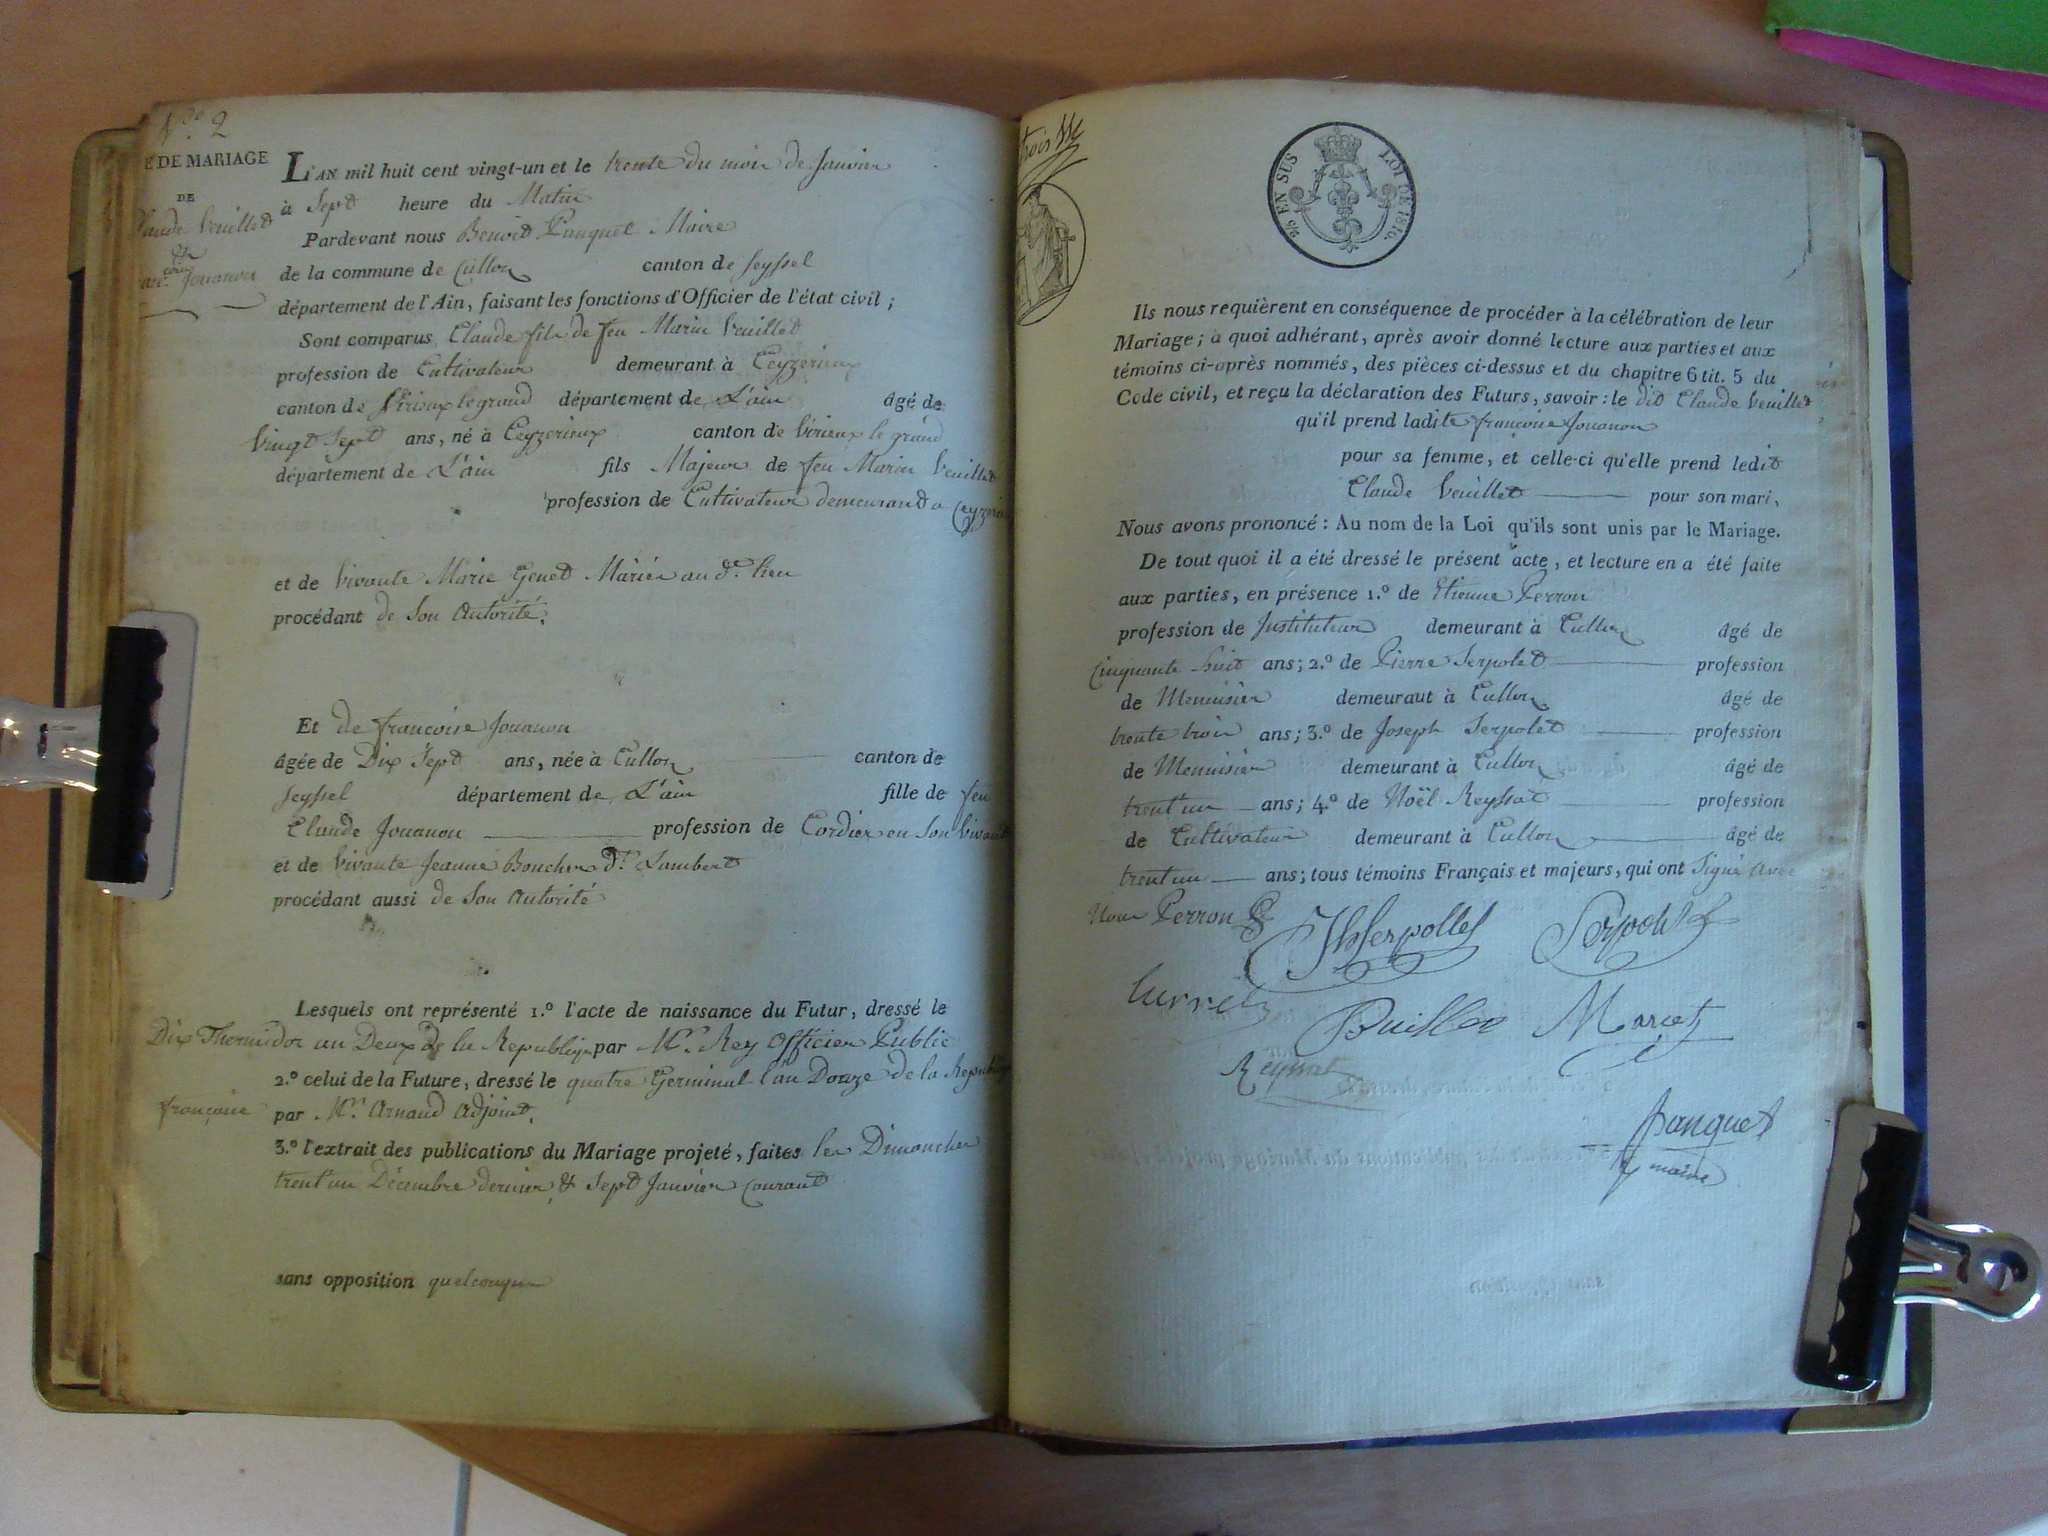 N.º 2
E DE MARIAGE
DE
Claude Veuillet
et
Jouanon
L'AN mil huit cent vingt-un et le trente du mois de Janvier
à Sept heure du Matin
Pardevant nous Benoit Panquet Maire
de la commune de Culloz canton de Seyssel
département de l'Ain, faisant les fonctions d'Officier de l'état civil ;
Sont comparus Claude fils de feu Marin Veuillet
profession de Cultivateur demeurant à Ceyzerieux
canton de Virieux le grand département de L'ain âgé de
Vingt Sept ans, né à Ceyzerieux canton de Virieux le grand
département de L'ain fils Majeur de feu Marin Veuillet
profession de Cultivateur demeurant a Ceyzerieux
et de Vivante Marie Genet Mariés au d.t lieu
procédant de Son Autorité.
Et de françoise Jouanon
âgée de Dix Sept ans, née à Culloz canton de
Seyssel département de L'ain fille de feu
Claude Jouanon profession de Cordier en Son Vivant
et de Vivante Jeanne Boucher d.t Lambert
procédant aussi de Son Autorité
Lesquels ont représenté 1.º l'acte de naissance du Futur, dressé le
Dix Thermidor an Deux de la Republique par M.r Rey Officier Public
2.º celui de la Future, dressé le quatre Germinal l'an Douze de la Republique
françoise par M.r Arnaud Adjoint.
3.º l'extrait des publications du Mariage projeté, faites les Dimanches
trent'un Décembre dernier & Sept Janvier Courant
sans opposition quelconque
trois
2/10 EN SUS LOI DE 1816.
Ils nous requièrent en conséquence de procéder à la célébration de leur
Mariage ; à quoi adhérant, après avoir donné lecture aux parties et aux
témoins ci-après nommés, des pièces ci-dessus et du chapitre 6 tit. 5 du
Code civil, et reçu la déclaration des Futurs, savoir : le dit Claude Veuillet
qu'il prend ladite françoise Jouanon
pour sa femme, et celle-ci qu'elle prend ledit
Claude Veuillet pour son mari,
Nous avons prononcé : Au nom de la Loi qu'ils sont unis par le Mariage.
De tout quoi il a été dressé le présent acte, et lecture en a été faite
aux parties, en présence 1.º de Etienne Perron
profession de Instituteur demeurant à Culloz âgé de
Cinquante huit ans ; 2.º de Pierre Serpolet profession
de Menuisier demeuraut à Culloz âgé de
trente trois ans ; 3.º de Joseph Serpolet profession
de Menuisier demeurant à Culloz âgé de
trent'un ans ; 4.º de Noël Reyssat profession
de Cultivateur demeurant à Culloz âgé de
trent'un ans ; tous témoins Français et majeurs, qui ont Signé avec
Nous Perron Jh Serpollet Serpolet
Curret Buillod Marcet
Reyssat
Panquet
maire